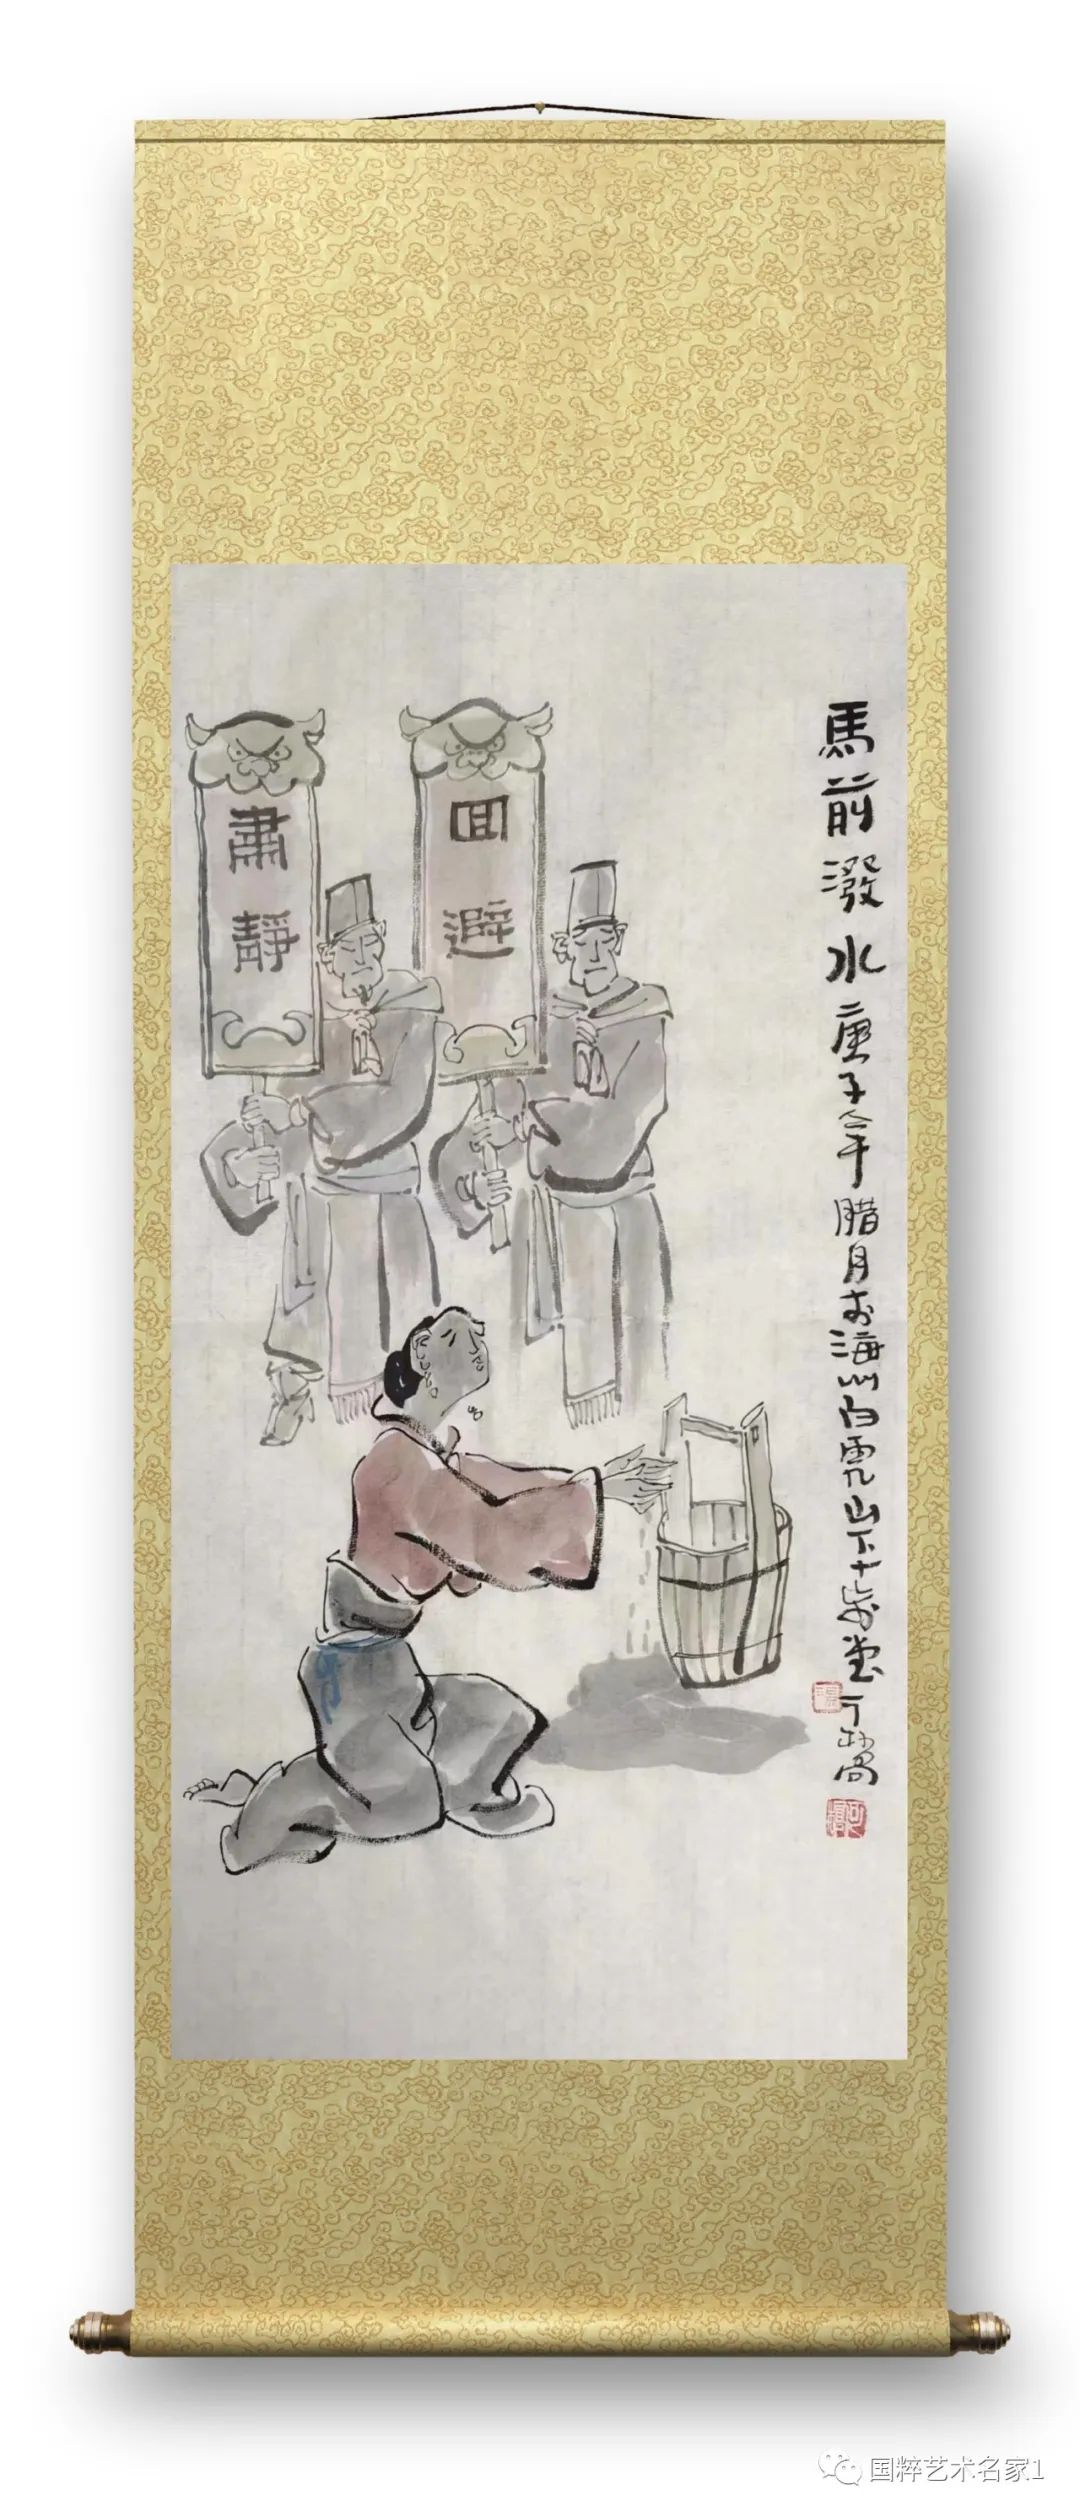 馬前潑水
庚子年腊月於海州白雲山下十步堂丁
肅靜
回避
国粹艺术名家1